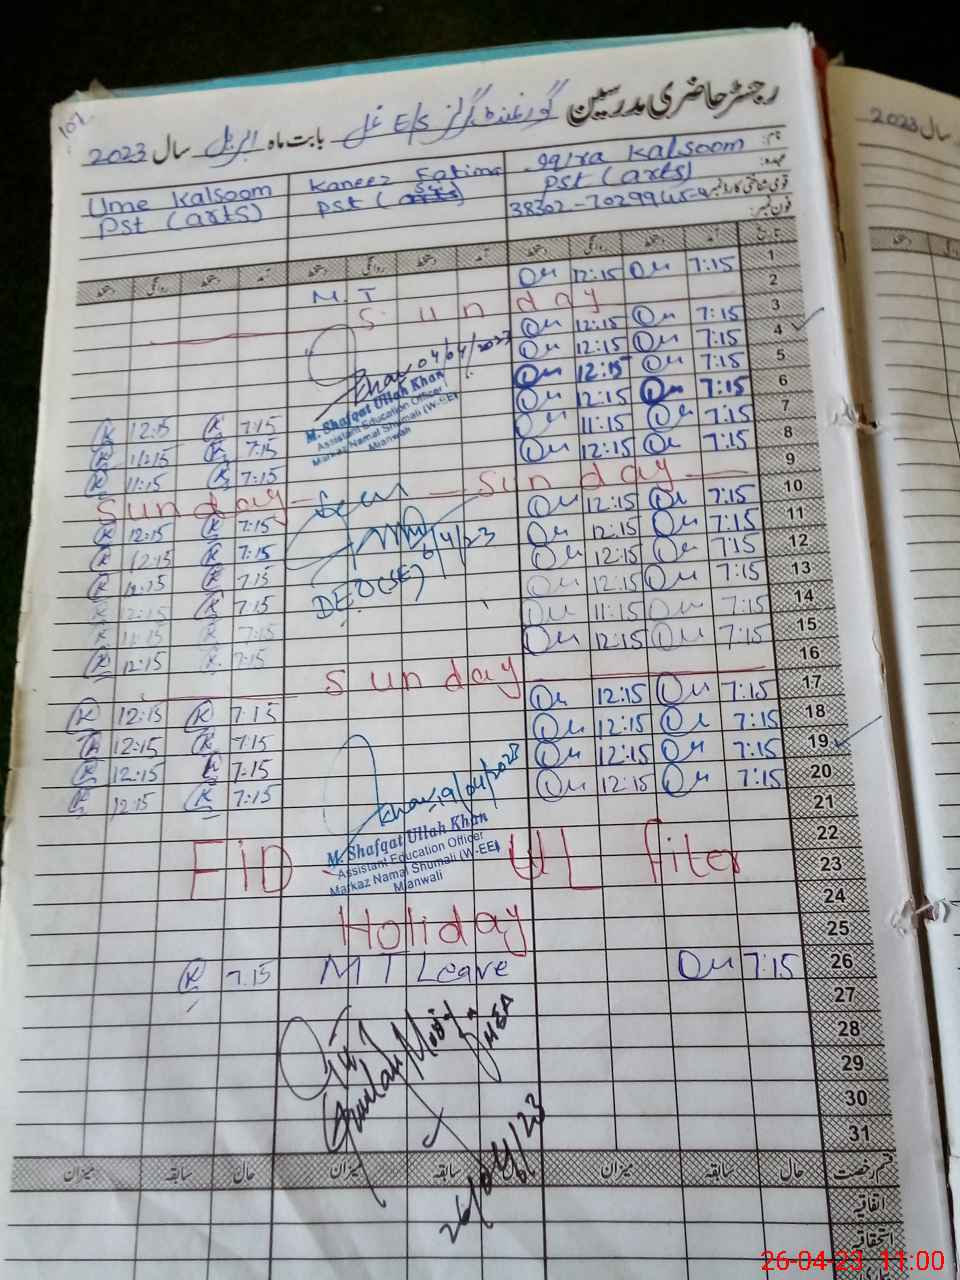 رجسٹر حاضری مدرسین گورنمنٹ گرلز E/S بابت ماہ اپریل سال 2023
نام:
عہدہ:
قومی شناختی کارڈ نمبر:
فون نمبر:
Iqra Kalsoom
PST (arts)
Kaneez Fatima
PST (
Ume Kalsoom
PST (arts)
تاریخ آمد دستخط روانگی دستخط آمد دستخط روانگی دستخط آمد دستخط روانگی دستخط
1 7:15 12:15
2 Sunday
M T
3 7:15 12:15
4 7:15 12:15
5 7:15 12:15
6 7:15 12:15 7:15 12:15
7 7:15 11:15 7:15 12:15
8 7:15 12:15 7:15 11:15
9 Sunday Sunday
10 7:15 12:15 7:15 12:15
11 7:15 12:15 7:15 12:15
12 7:15 12:15 7:15 12:15
13 7:15 12:15 7:15 12:15
14 7:15 11:15 7:15 11:15
15 7:15 12:15 7:15 12:15
16 Sunday
17 7:15 12:15 7:15 12:15
18 7:15 12:15 7:15 12:15
19 7:15 12:15 7:15 12:15
20 7:15 12:15 7:15 12:15
21
22
23 EID UL fiter
24
25 Holiday
26 7:15 M T Leave 7:15
27
28
29
30
31
04/04/2023
M. Shafqat Ullah Khan
Assistant Education Officer
Markaz Namal Shumali (W-EE)
Mianwali
Seen
DEO(SE)
19/04/2023
M. Shafqat Ullah Khan
Assistant Education Officer
Markaz Namal Shumali (W-EE)
Mianwali
MEA
26/04/23
قسم رخصت حال سابقہ میزان حال سابقہ میزان حال سابقہ میزان
اتفاقیہ
استحقاقیہ
سال 2023
26-04-23 11:00